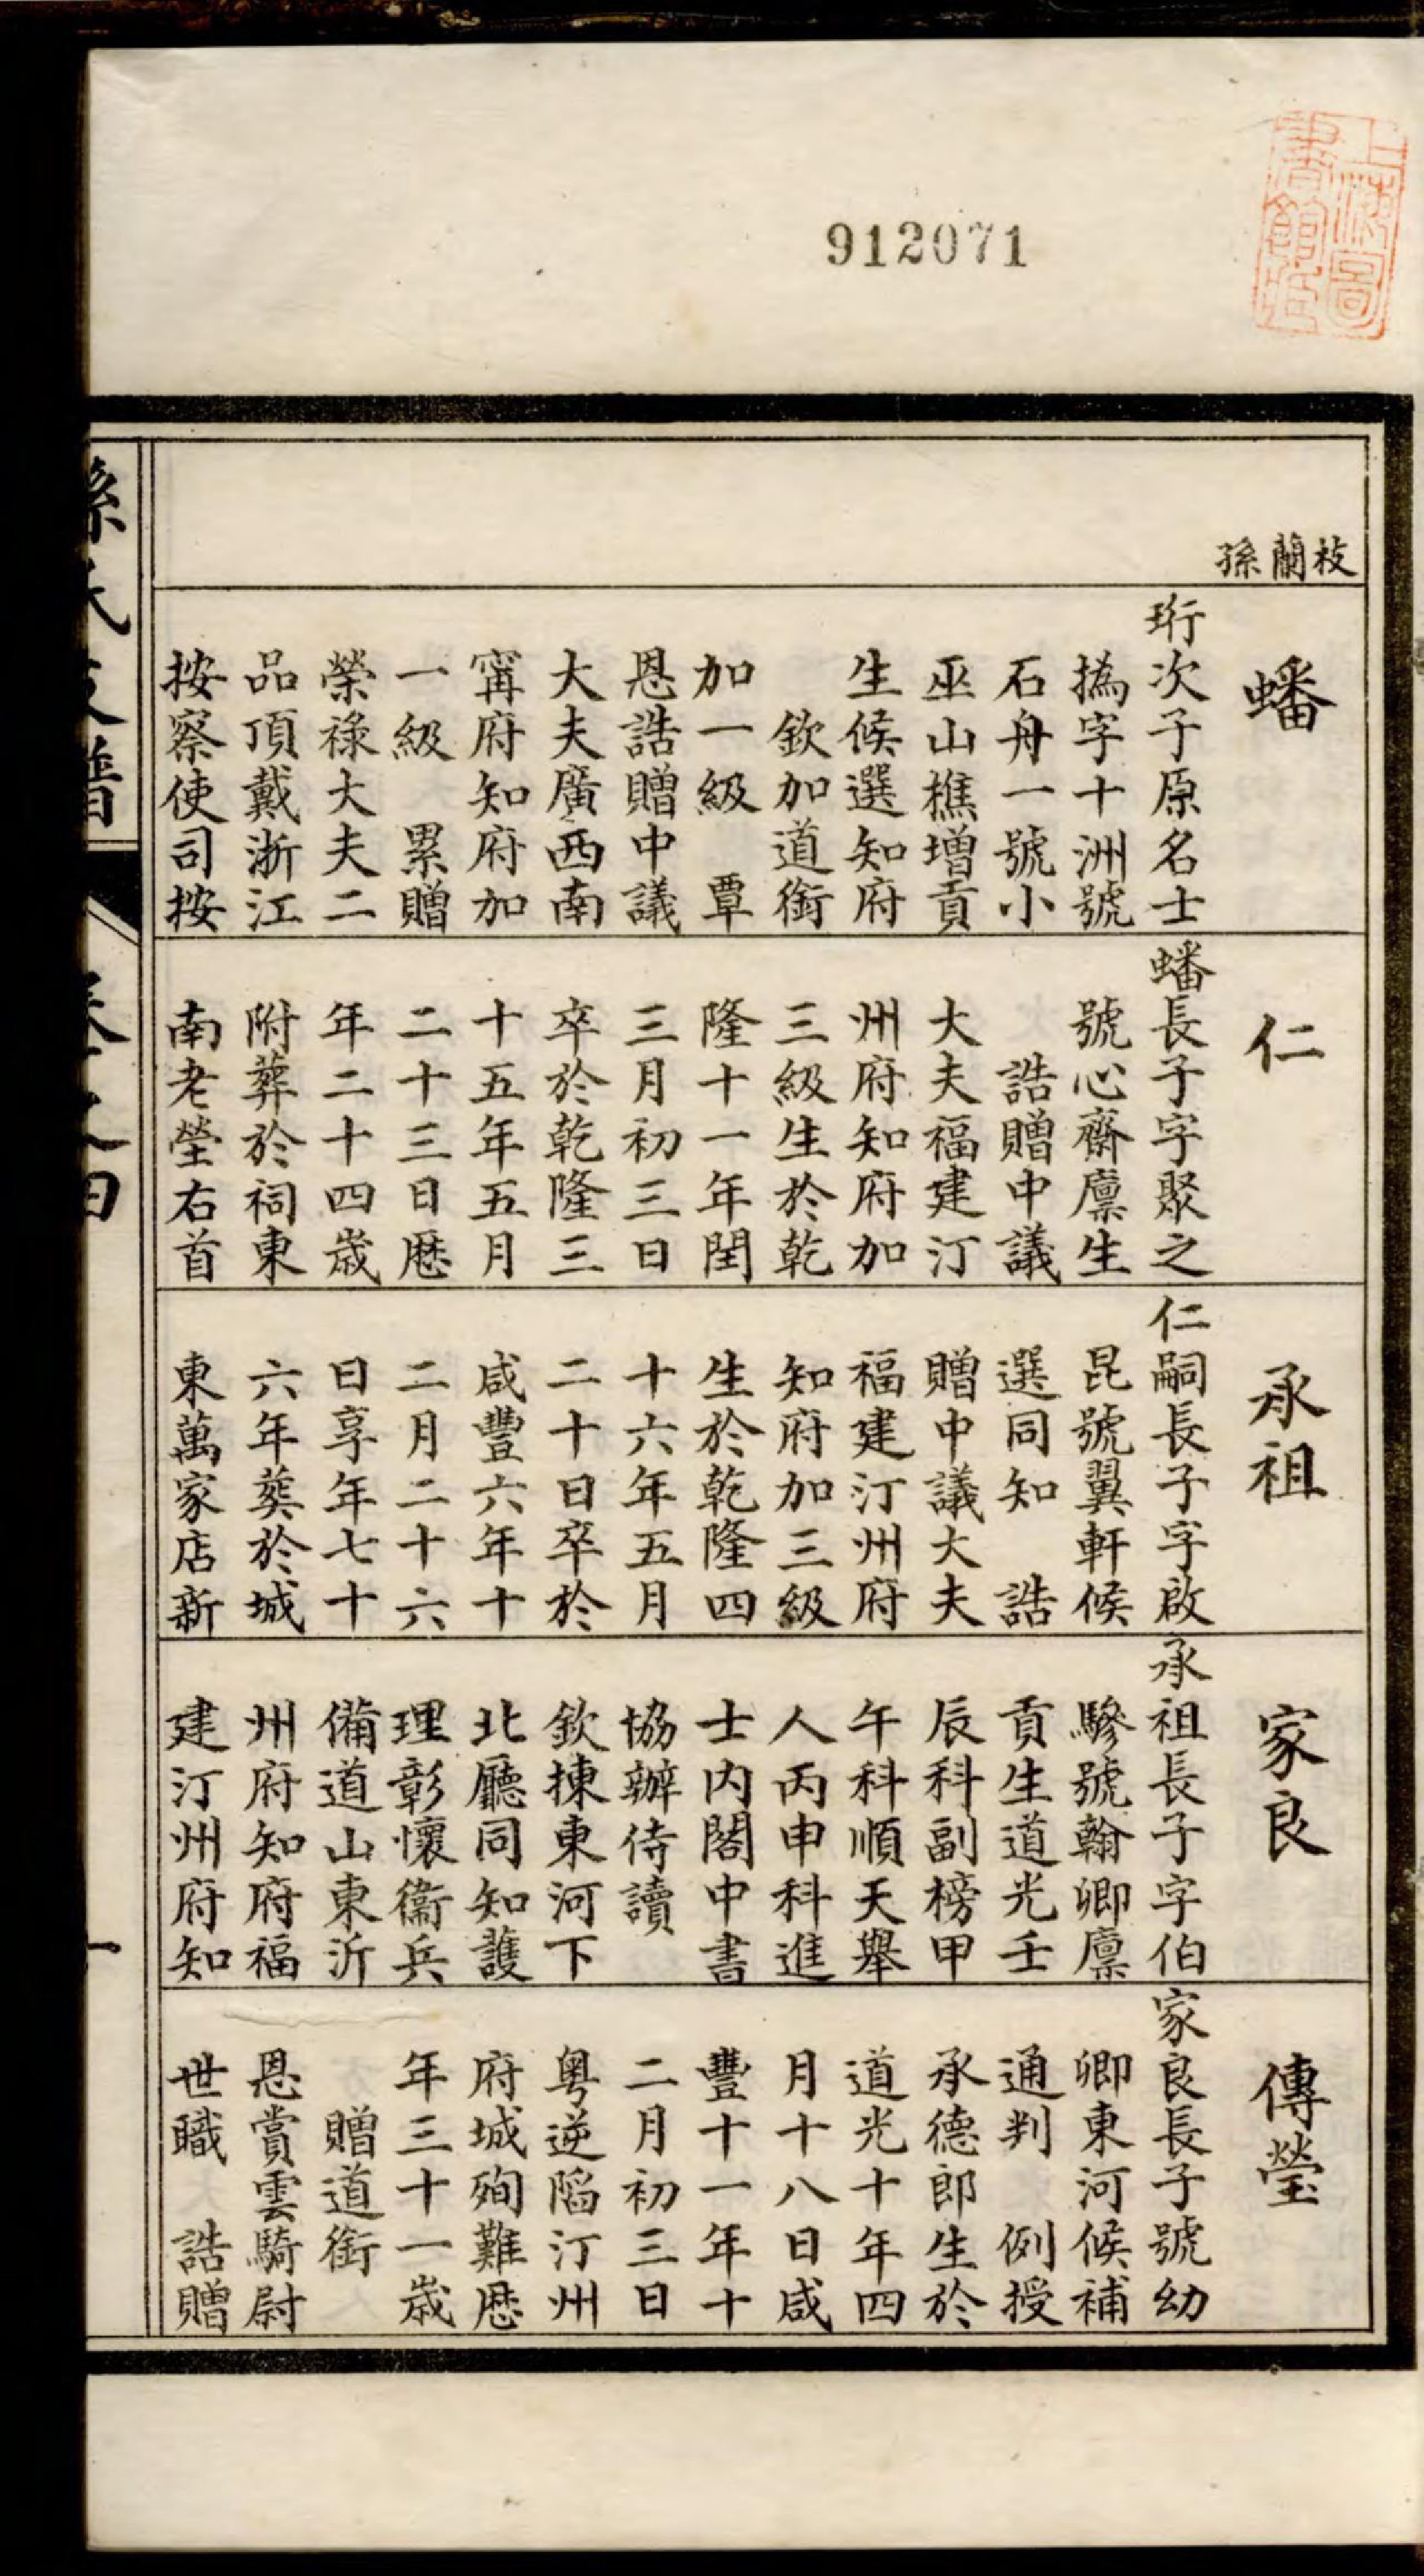 上海圖
書館藏
912071
枝蘭孫
蟠
珩次子原名士
撝字十洲號
石舟一號小
巫山樵增貢
生候選知府
欽加道銜
加一級 覃
恩誥贈中議
大夫廣西南
甯府知府加
一級 累贈
榮祿大夫二
品頂戴浙江
按察使司按
仁
蟠長子字聚之
號心齋廪生
誥贈中議
大夫福建汀
州府知府加
三級生於乾
隆十一年閏
三月初三日
卒於乾隆三
十五年五月
二十三日歴
年二十四歲
附葬於祠東
南老塋右首
承祖
仁嗣長子字啟
昆號翼軒候
選同知 誥
贈中議大夫
福建汀州府
知府加三級
生於乾隆四
十六年五月
二十日卒於
咸豐六年十
二月二十六
日享年七十
六年葬於城
東萬家店新
家良
承祖長子字伯
驂號翰卿廪
貢生道光壬
辰科副榜甲
午科順天舉
人丙申科進
士内閣中書
協辦侍讀
欽揀東河下
北廳同知護
理彰懷衞兵
備道山東沂
州府知府福
建汀州府知
傳瑩
家良長子號幼
卿東河候補
通判 例授
承德郎生於
道光十年四
月十八日咸
豐十一年十
二月初三日
粤逆陷汀州
府城殉難歴
年三十一歲
贈道銜
恩賞雲騎尉
世職 誥贈
孫氏支譜 卷之四 一